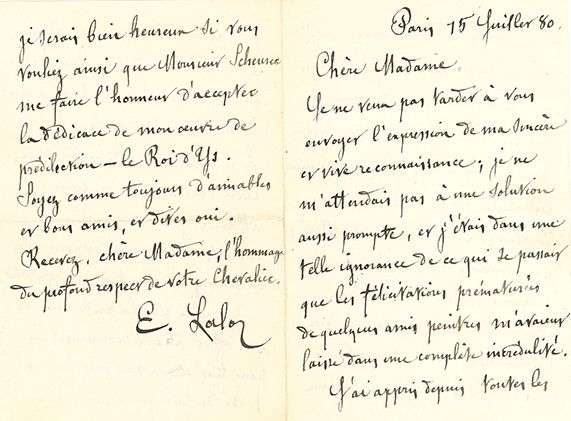 Paris 15 Juillet 80.
Chère Madame.
Je ne veux pas tarder à vous
envoyer l'expression de ma sincère
et vive reconnaissance ; je ne
m'attendais pas à une solution
aussi prompte, et j'étais dans une
telle ignorance de ce qui se passait
que les félicitations prématurées
de quelques amis peintres m'avaient
laissé dans une complète incrédulité.
J'ai appris depuis toutes les
je serais bien heureux si vous
vouliez ainsi que Monsieur
me faire l'honneur d'accepter
la dédicace de mon œuvre de
prédilection — le Roi d'Ys.
Soyez comme toujours d'aimables
et bons amis, et dites oui.
Recevez, chère Madame, l'hommage
du profond respect de votre Chevalier.
E. Lalo